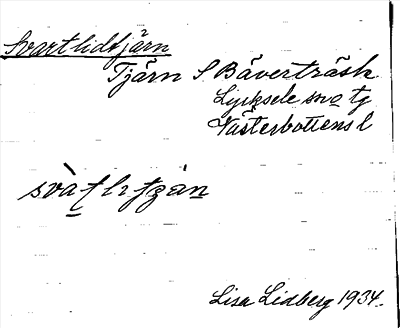 Svartlidtjärn
Tjärn S Bäverträsk
Lycksele sn o tg
Västerbottens l
Lisa Lidberg 1934.